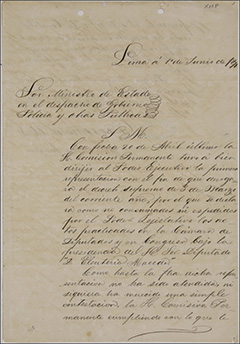 Lima á 1º Junio de
Sor. Ministro de Estado
en el despacho de Gobierno
Policia y obras Publicas
S. M.
Con fecha 20 de Abril último la
H. Comision Permanente tuvo á bien
dirijir al Poder Ejecutivo la primera
representacion con el fin de que dero
el decreto supremo de 2 de Marzo
del corriente año, por el que se decla
ró como no consumados ni espedidos
por el Poder Legislativo los ac
tos practicados en la Cámara de
Diputados y en Congreso bajo la
presidencia del H. Sor Diputado
D.
Como hasta la fha dicha repre
sentacion no ha sido atendida, ni
siquiera ha merecido una simple
contestacion, la H. Comision Per
manente cumpliendo con lo que le